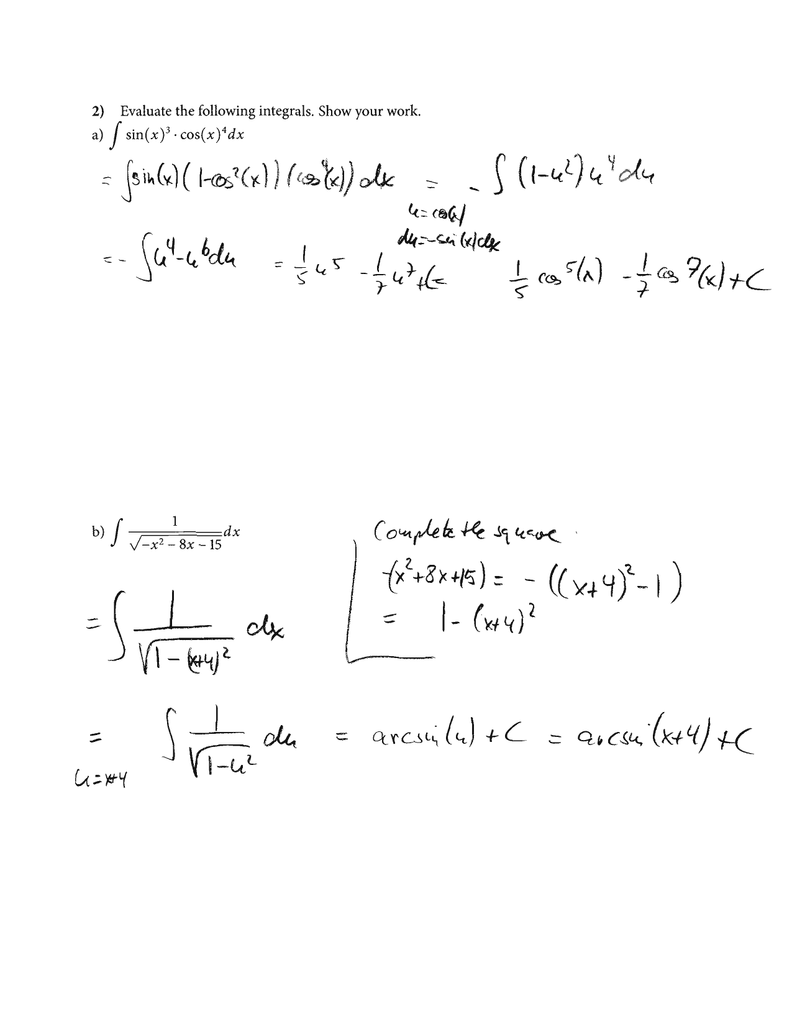 2) Evaluate the following integrals. Show your work.
a) ∫ sin(x)³ · cos(x)⁴ dx
= ∫ sin(x) (1-cos²(x)) (cos⁴(x)) dx = - ∫ (1-u²) u⁴ du
u = cos(x)
du = -sin(x) dx
= - ∫ u⁴ - u⁶ du = 1/5 u⁵ - 1/7 u⁷ + C = 1/5 cos⁵(x) - 1/7 cos⁷(x) + C
b) ∫ 1/√(-x² - 8x - 15) dx
Complete the square
-(x²+8x+15) = - ((x+4)² - 1)
= 1 - (x+4)²
= ∫ 1/√(1-(x+4)²) dx
= ∫ 1/√(1-u²) du = arcsin(u) + C = arcsin(x+4) + C
u = x+4